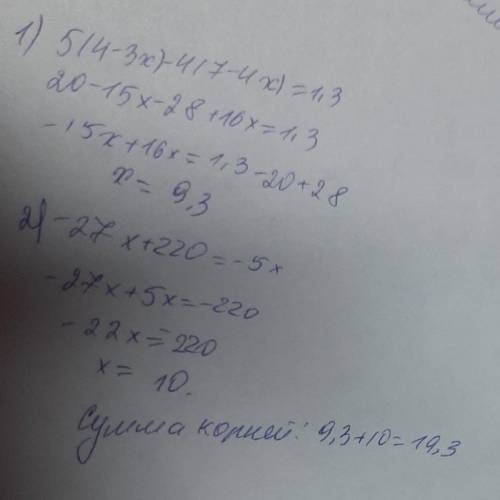 1) 5(4-3x)-4(7-4x)=1,3
20-15x-28+16x=1,3
-15x+16x=1,3-20+28
x= 9,3
2) -27x+220=-5x
-27x+5x=-220
-22x=-220
x= 10.
Сумма корней: 9,3+10=19,3